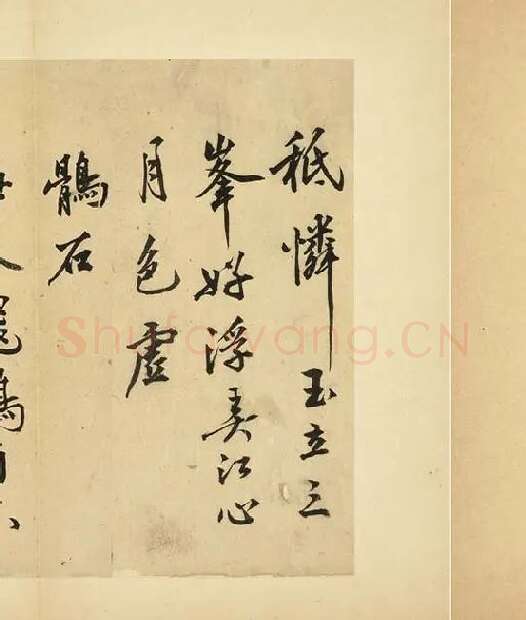 秪憐玉立三
峯好浮弄江心
月色虛
鶻石
Shufawang.CN